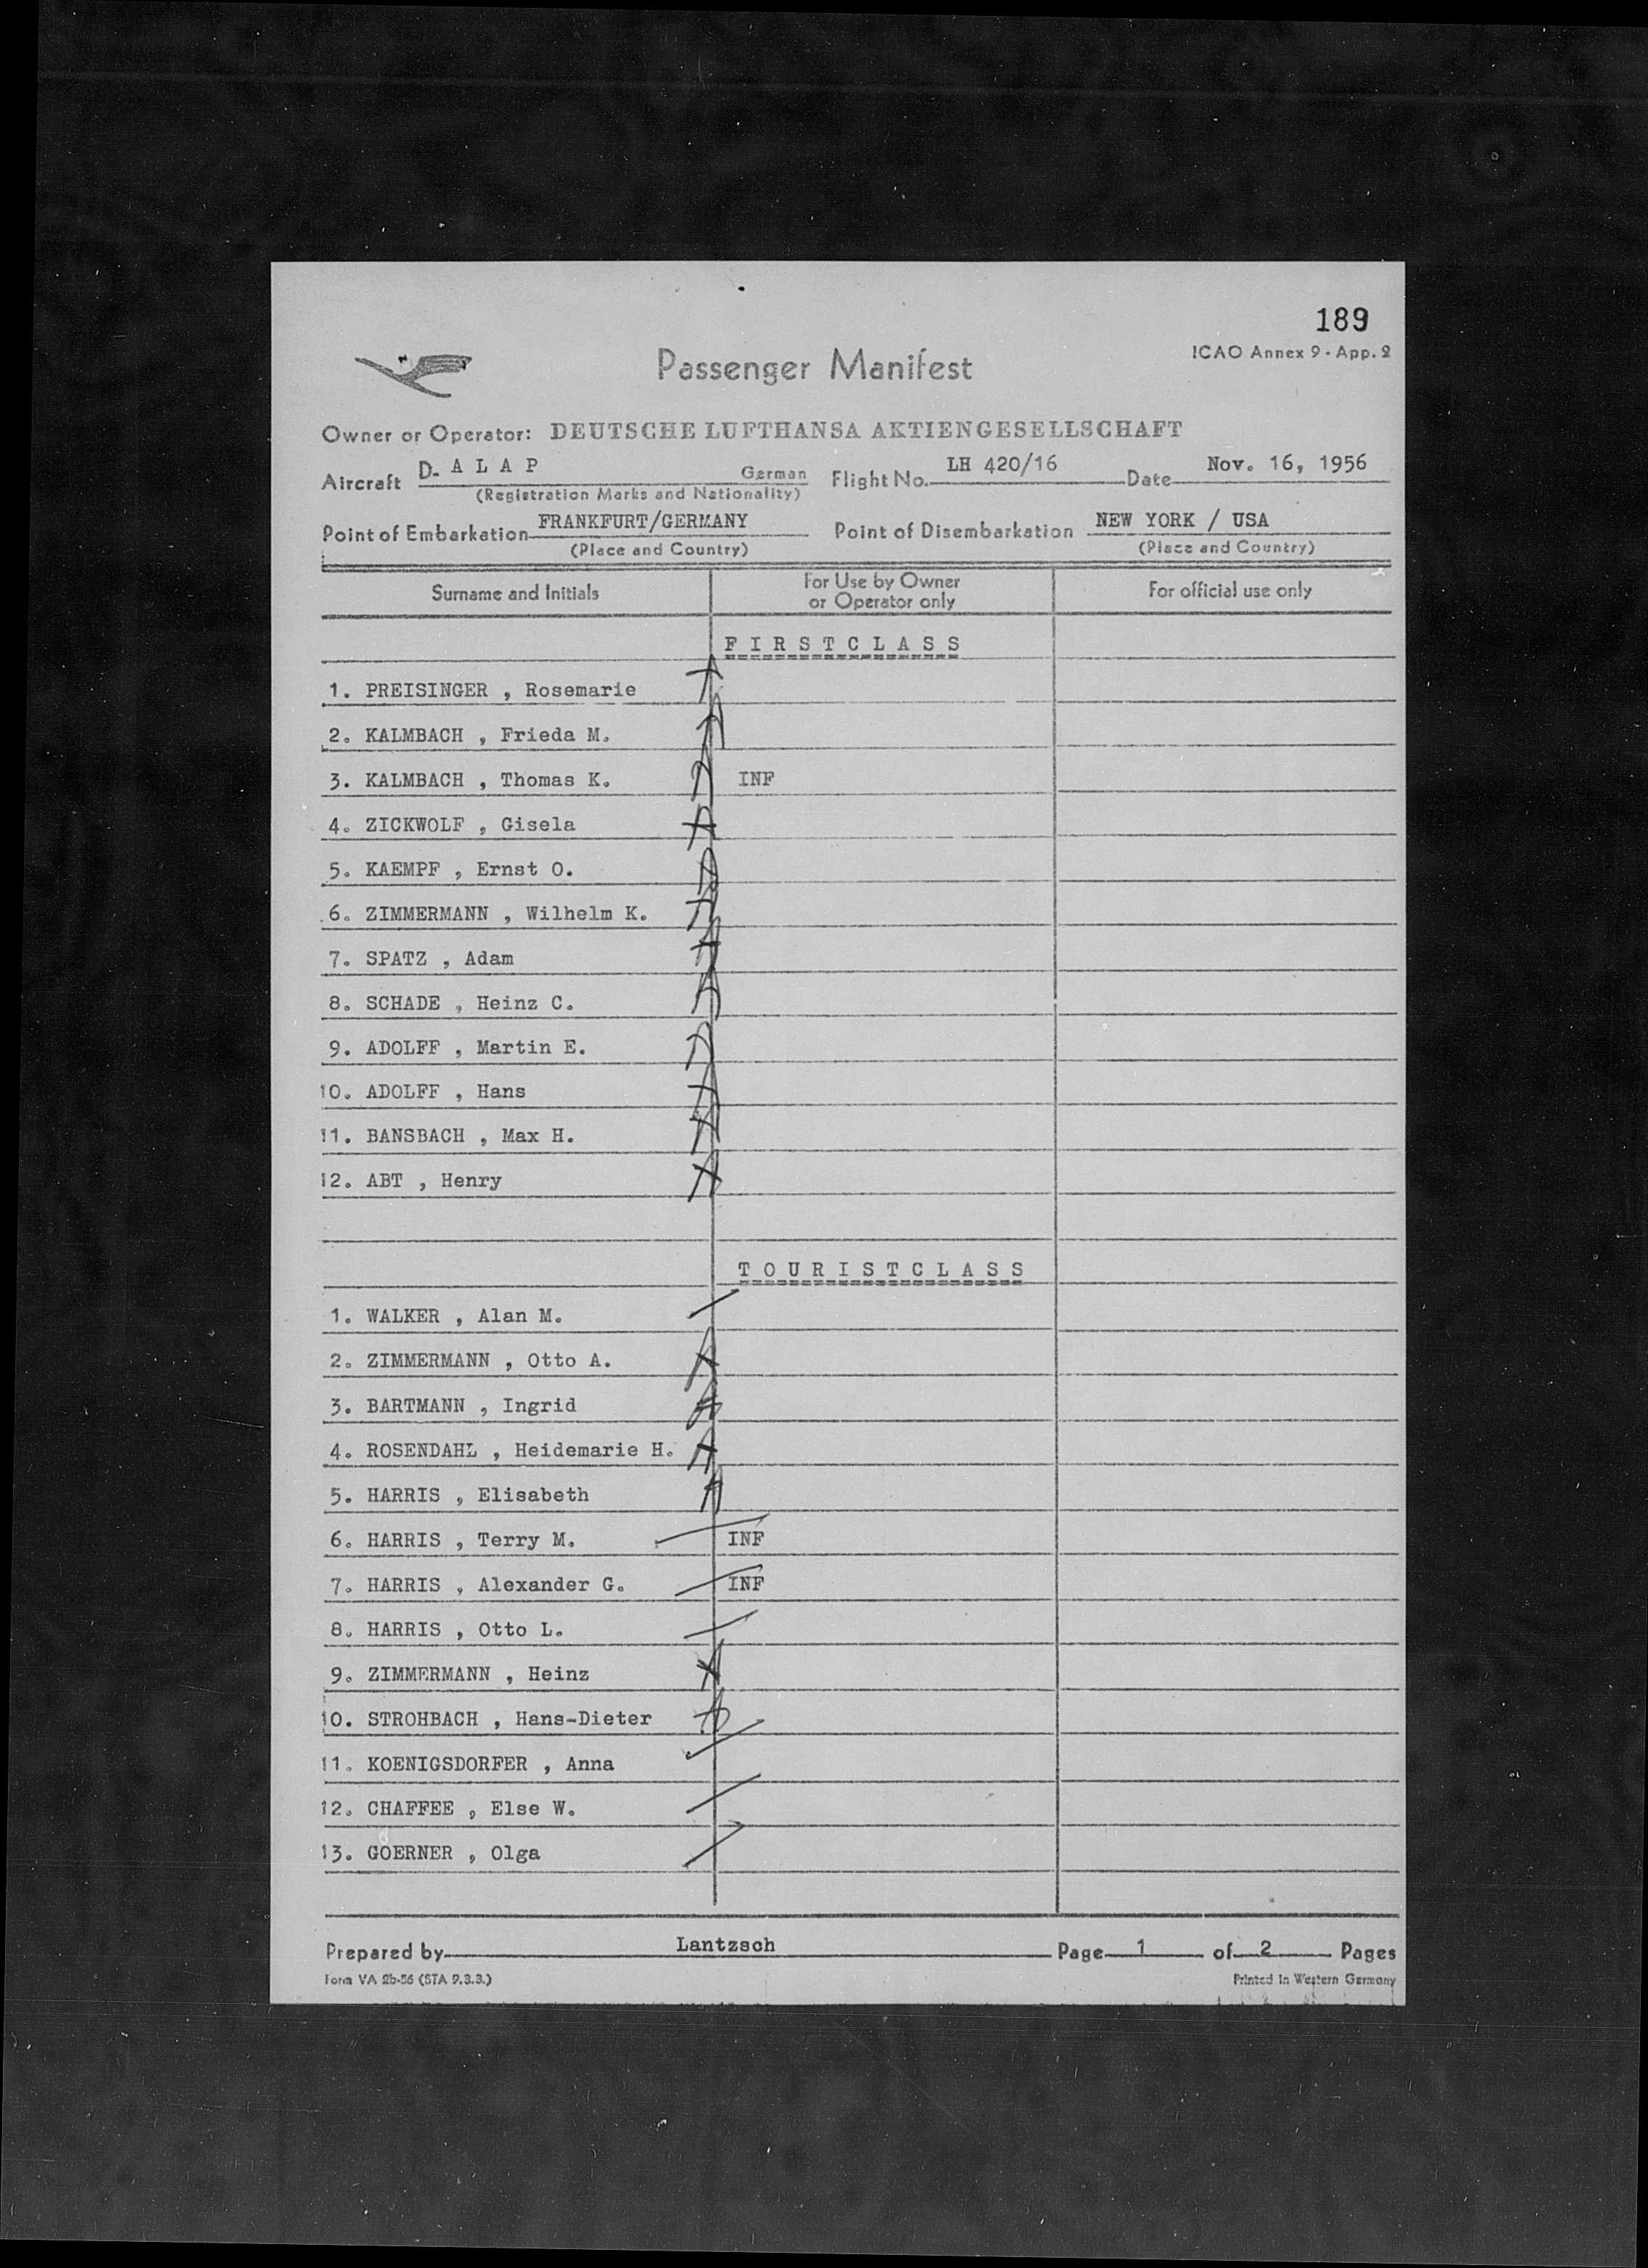 189
ICAO Annex 9 - App. 2
Passenger Manifest
Owner or Operator: DEUTSCHE LUFTHANSA AKTIENGESELLSCHAFT
Aircraft D- A L A P German Flight No. LH 420/16 Date Nov. 16, 1956
(Registration Marks and Nationality)
Point of Embarkation FRANKFURT/GERMANY Point of Disembarkation NEW YORK / USA
(Place and Country) (Place and Country)
Surname and Initials For Use by Owner or Operator only For official use only
F I R S T C L A S S
1. PREISINGER , Rosemarie A
2. KALMBACH , Frieda M. A
3. KALMBACH , Thomas K. A INF
4. ZICKWOLF , Gisela A
5. KAEMPF , Ernst O. A
6. ZIMMERMANN , Wilhelm K. A
7. SPATZ , Adam A
8. SCHADE , Heinz C. A
9. ADOLFF , Martin E. A
10. ADOLFF , Hans A
11. BANSBACH , Max H. A
12. ABT , Henry A
T O U R I S T C L A S S
1. WALKER , Alan M.
2. ZIMMERMANN , Otto A. A
3. BARTMANN , Ingrid A
4. ROSENDAHL , Heidemarie H. A
5. HARRIS , Elisabeth A
6. HARRIS , Terry M. INF
7. HARRIS , Alexander G. INF
8. HARRIS , Otto L.
9. ZIMMERMANN , Heinz A
10. STROHBACH , Hans-Dieter A
11. KOENIGSDORFER , Anna
12. CHAFFEE , Else W.
13. GOERNER , Olga
Prepared by Lantzsch Page 1 of 2 Pages
Form VA 2b-56 (STA 9.3.3.) Printed in Western Germany